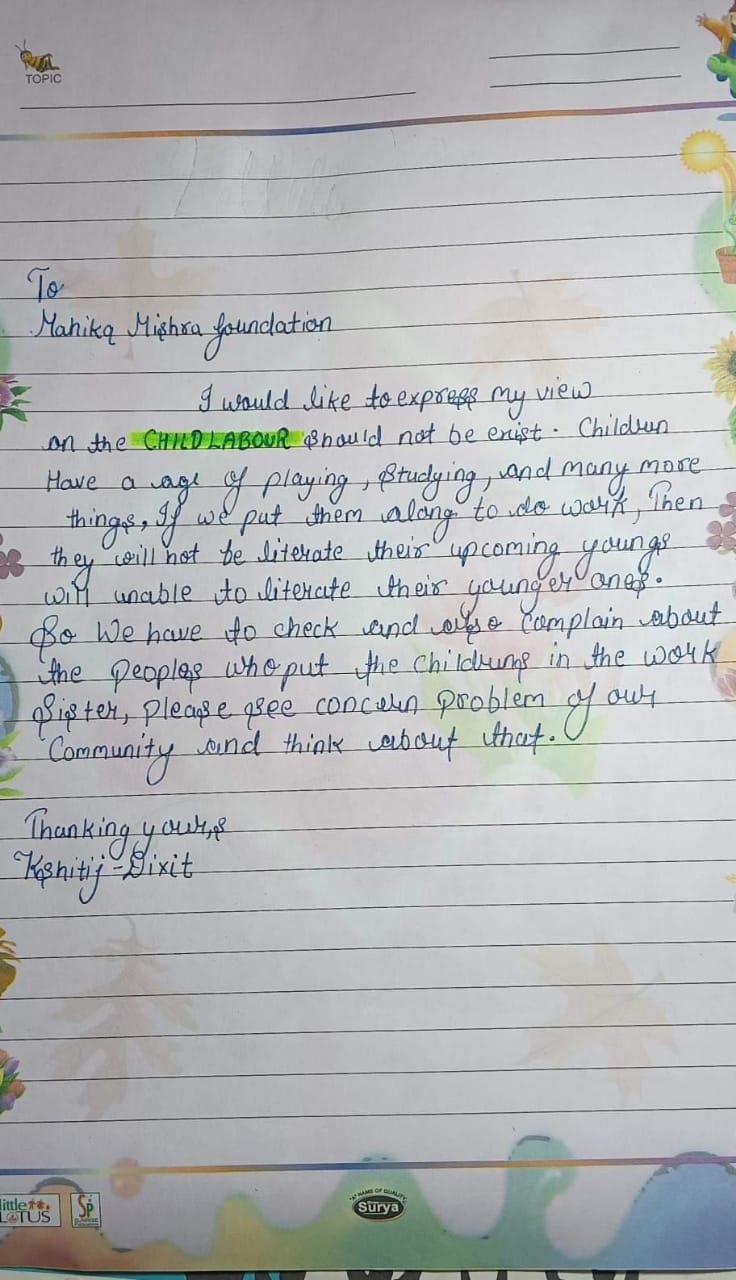 TOPIC
To
Mahika Mishra foundation
I would like to express my view
on the CHILD LABOUR should not be exist. Children
Have a age of playing, Studying, and many more
things, If we put them along to do work, Then
they will not be literate their upcoming youngs
will unable to literate their younger ones.
So We have to check and also Complain about
the peoples who put the Childrens in the work
Sister, please see concern problem of our
Community and think about that.
Thanking your,s
Kshitij-Dixit
little
LOTUS
SP
"A" NAME OF QUALITY
Surya